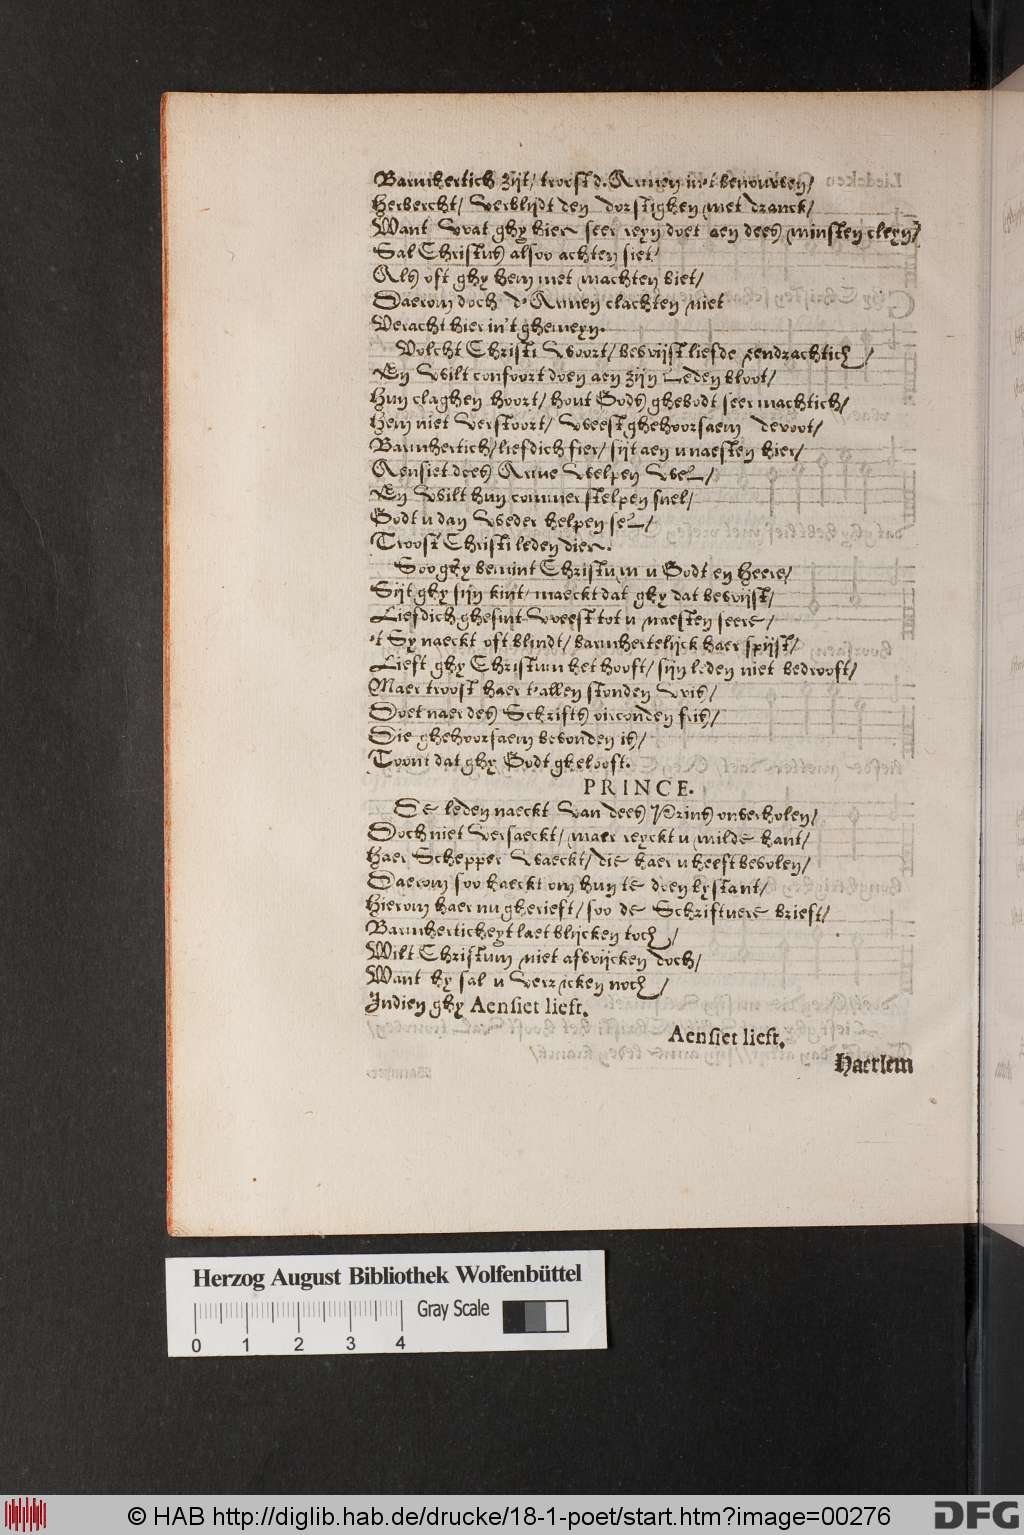 Barmhertich zijt/ troost d'Armen in't benouwen/
Herbercht/ Verblijdt den dorstighen met dranck/
Want Wat ghy hier seer reyn doet aen dees minsten cleyn/
Sal Christus alsoo achten siet/
Als oft ghy hem met machten biet/
Daerom doch d'Armen clachten niet
Veracht hier in't ghemeyn.
Volcht Christi Woort/ bewijst liefde eendrachtich/
En Wilt confoort doen aen zijn Leden bloot/
Hun claghen hoort/ hout Gods ghebodt seer machtich/
Hem niet Verstoort/ Weest ghehoorsaem devoot/
Barmhertich/ liefdich fier/ sijt aen u naesten hier/
Aensiet dees Arme Welpen Wel/
En Wilt hun commer stelpen snel/
Godt u dan Weder helpen sel/
Troost Christi leden dier.
Soo ghy bemint Christum u Godt en Heere/
Sijt ghy sijn kint/ maeckt dat ghy dat bewijst/
Liefdich ghesint Weest tot u naesten seere/
't Sy naeckt oft blindt/ barmhertelijck haer spijst/
Lieft ghy Christum het hooft/ sijn leden niet bedrooft/
Maer troost haer t'allen stonden Vris/
Doet naer des Schrifts oirconden fris/
Die ghehoorsaem bevonden is/
Toont dat ghy Godt gheloost.
PRINCE.
De leden naeckt Van dees Prins onverholen/
Doch niet Versaeckt/ maer reyckt u milde hant/
Haer Schepper Waeckt/ die haer u heeft bevolen/
Daerom soo haeckt om hun te doen bystant/
Hierom haer nu gherieft/ soo de Schriftuere brieft/
Barmherticheyt laet blijcken toch/
Wilt Christum niet afwijcken doch/
Want hy sal u Verrijcken noch/
Indien ghy Aensiet lieft.
Aensiet lieft.
Haerlem
Herzog August Bibliothek Wolfenbüttel
Gray Scale
0 1 2 3 4
© HAB http://diglib.hab.de/drucke/18-1-poet/start.htm?image=00276
DFG